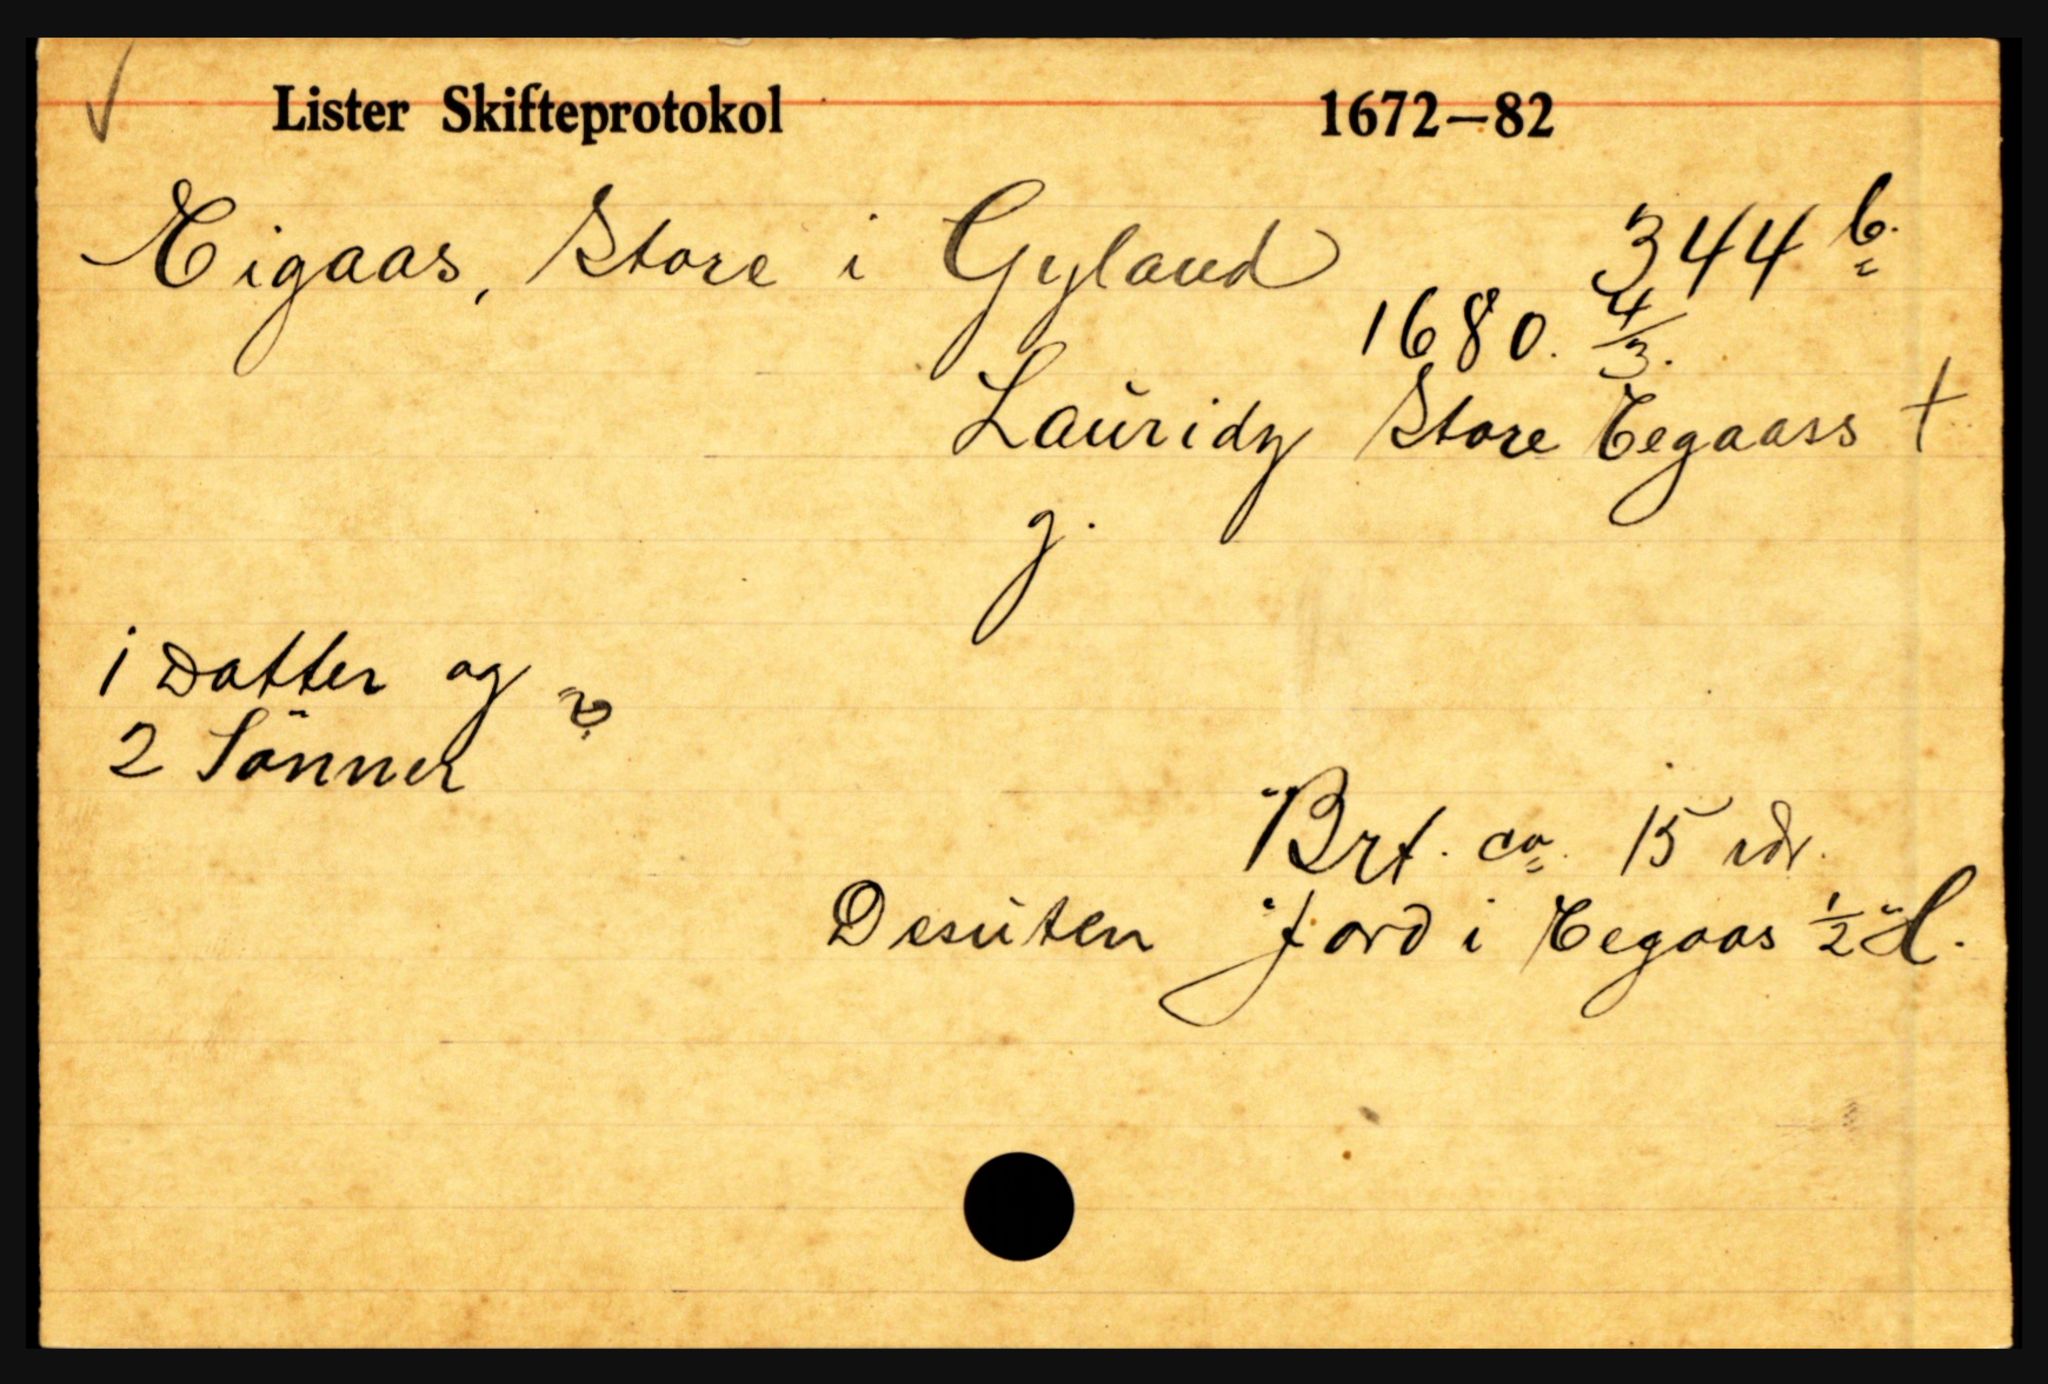 Lister Skifteprotokol 1672–82
Eigaas, Store i Gyland 344 b.
1680. 4/3.
Lauridz Store Eegaass †
g.
1 Datter og
2 Sønner ?
Brt. ca. 15 rdr.
Desuten Jord i Eegaas 1/2 H.